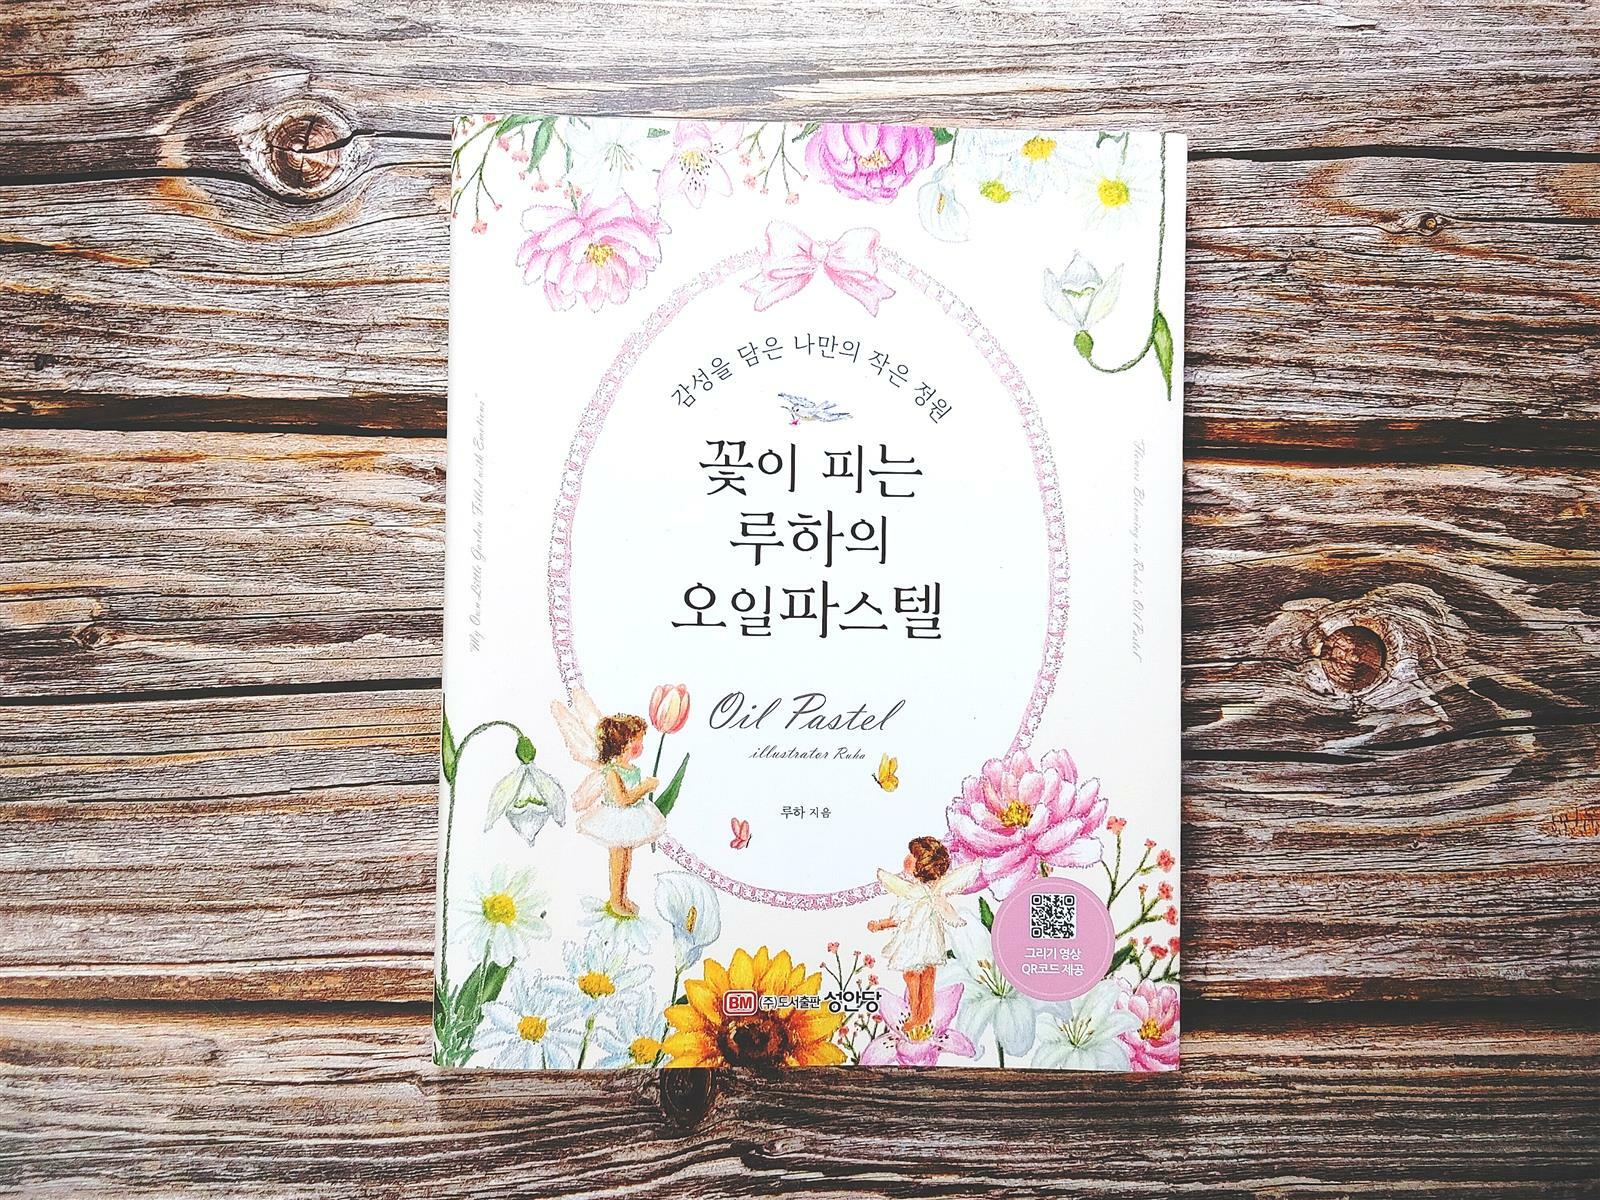 감성을 담은 나만의 작은 정원
꽃이 피는
루하의
오일파스텔
Oil Pastel
illustrator Ruha
루하 지음
My Own Little Garden Filled with Emotions"
Flowers Blooming in Ruha's Oil Pastel
그리기 영상
QR코드 제공
BM (주)도서출판 성안당